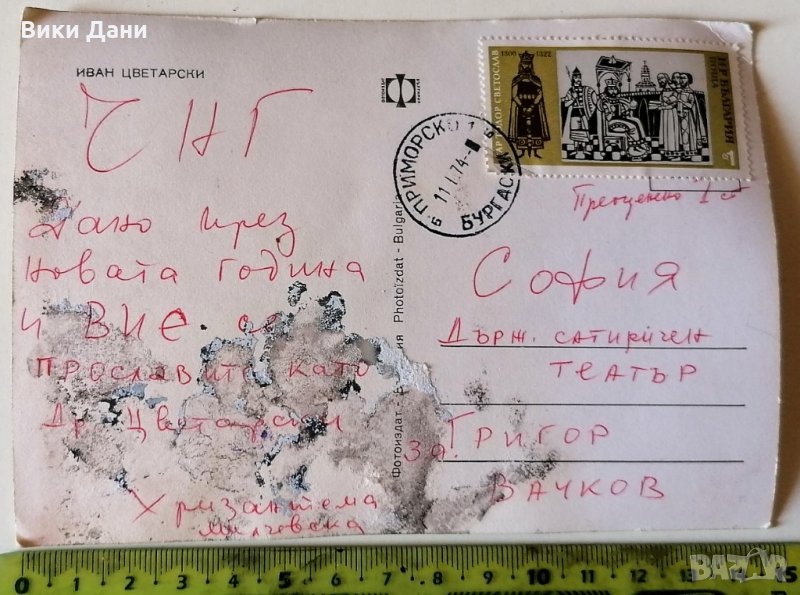 Вики Дани
ИВАН ЦВЕТАРСКИ
ЧНГ
Дано през
новата година
и ВИЕ се
прославите като
Др. Цветарски
Хризантема
Милчевска
Photoizdat - Bulgaria
Фотоиздат
ПРИМОРСКО 1
11.I.74
БУРГАСКИ
ЦАР ТОДОР СВЕТОСЛАВ
1300 1322
НР БЪЛГАРИЯ
ПОЩА
1
Преоценено 1 ст
СОФИЯ
Държ. сатиричен
ТЕАТЪР
За ГРИГОР
ВАЧКОВ
0 1 2 3 4 5 6 7 8 9 10 11 12 13 14 15
BAZAR